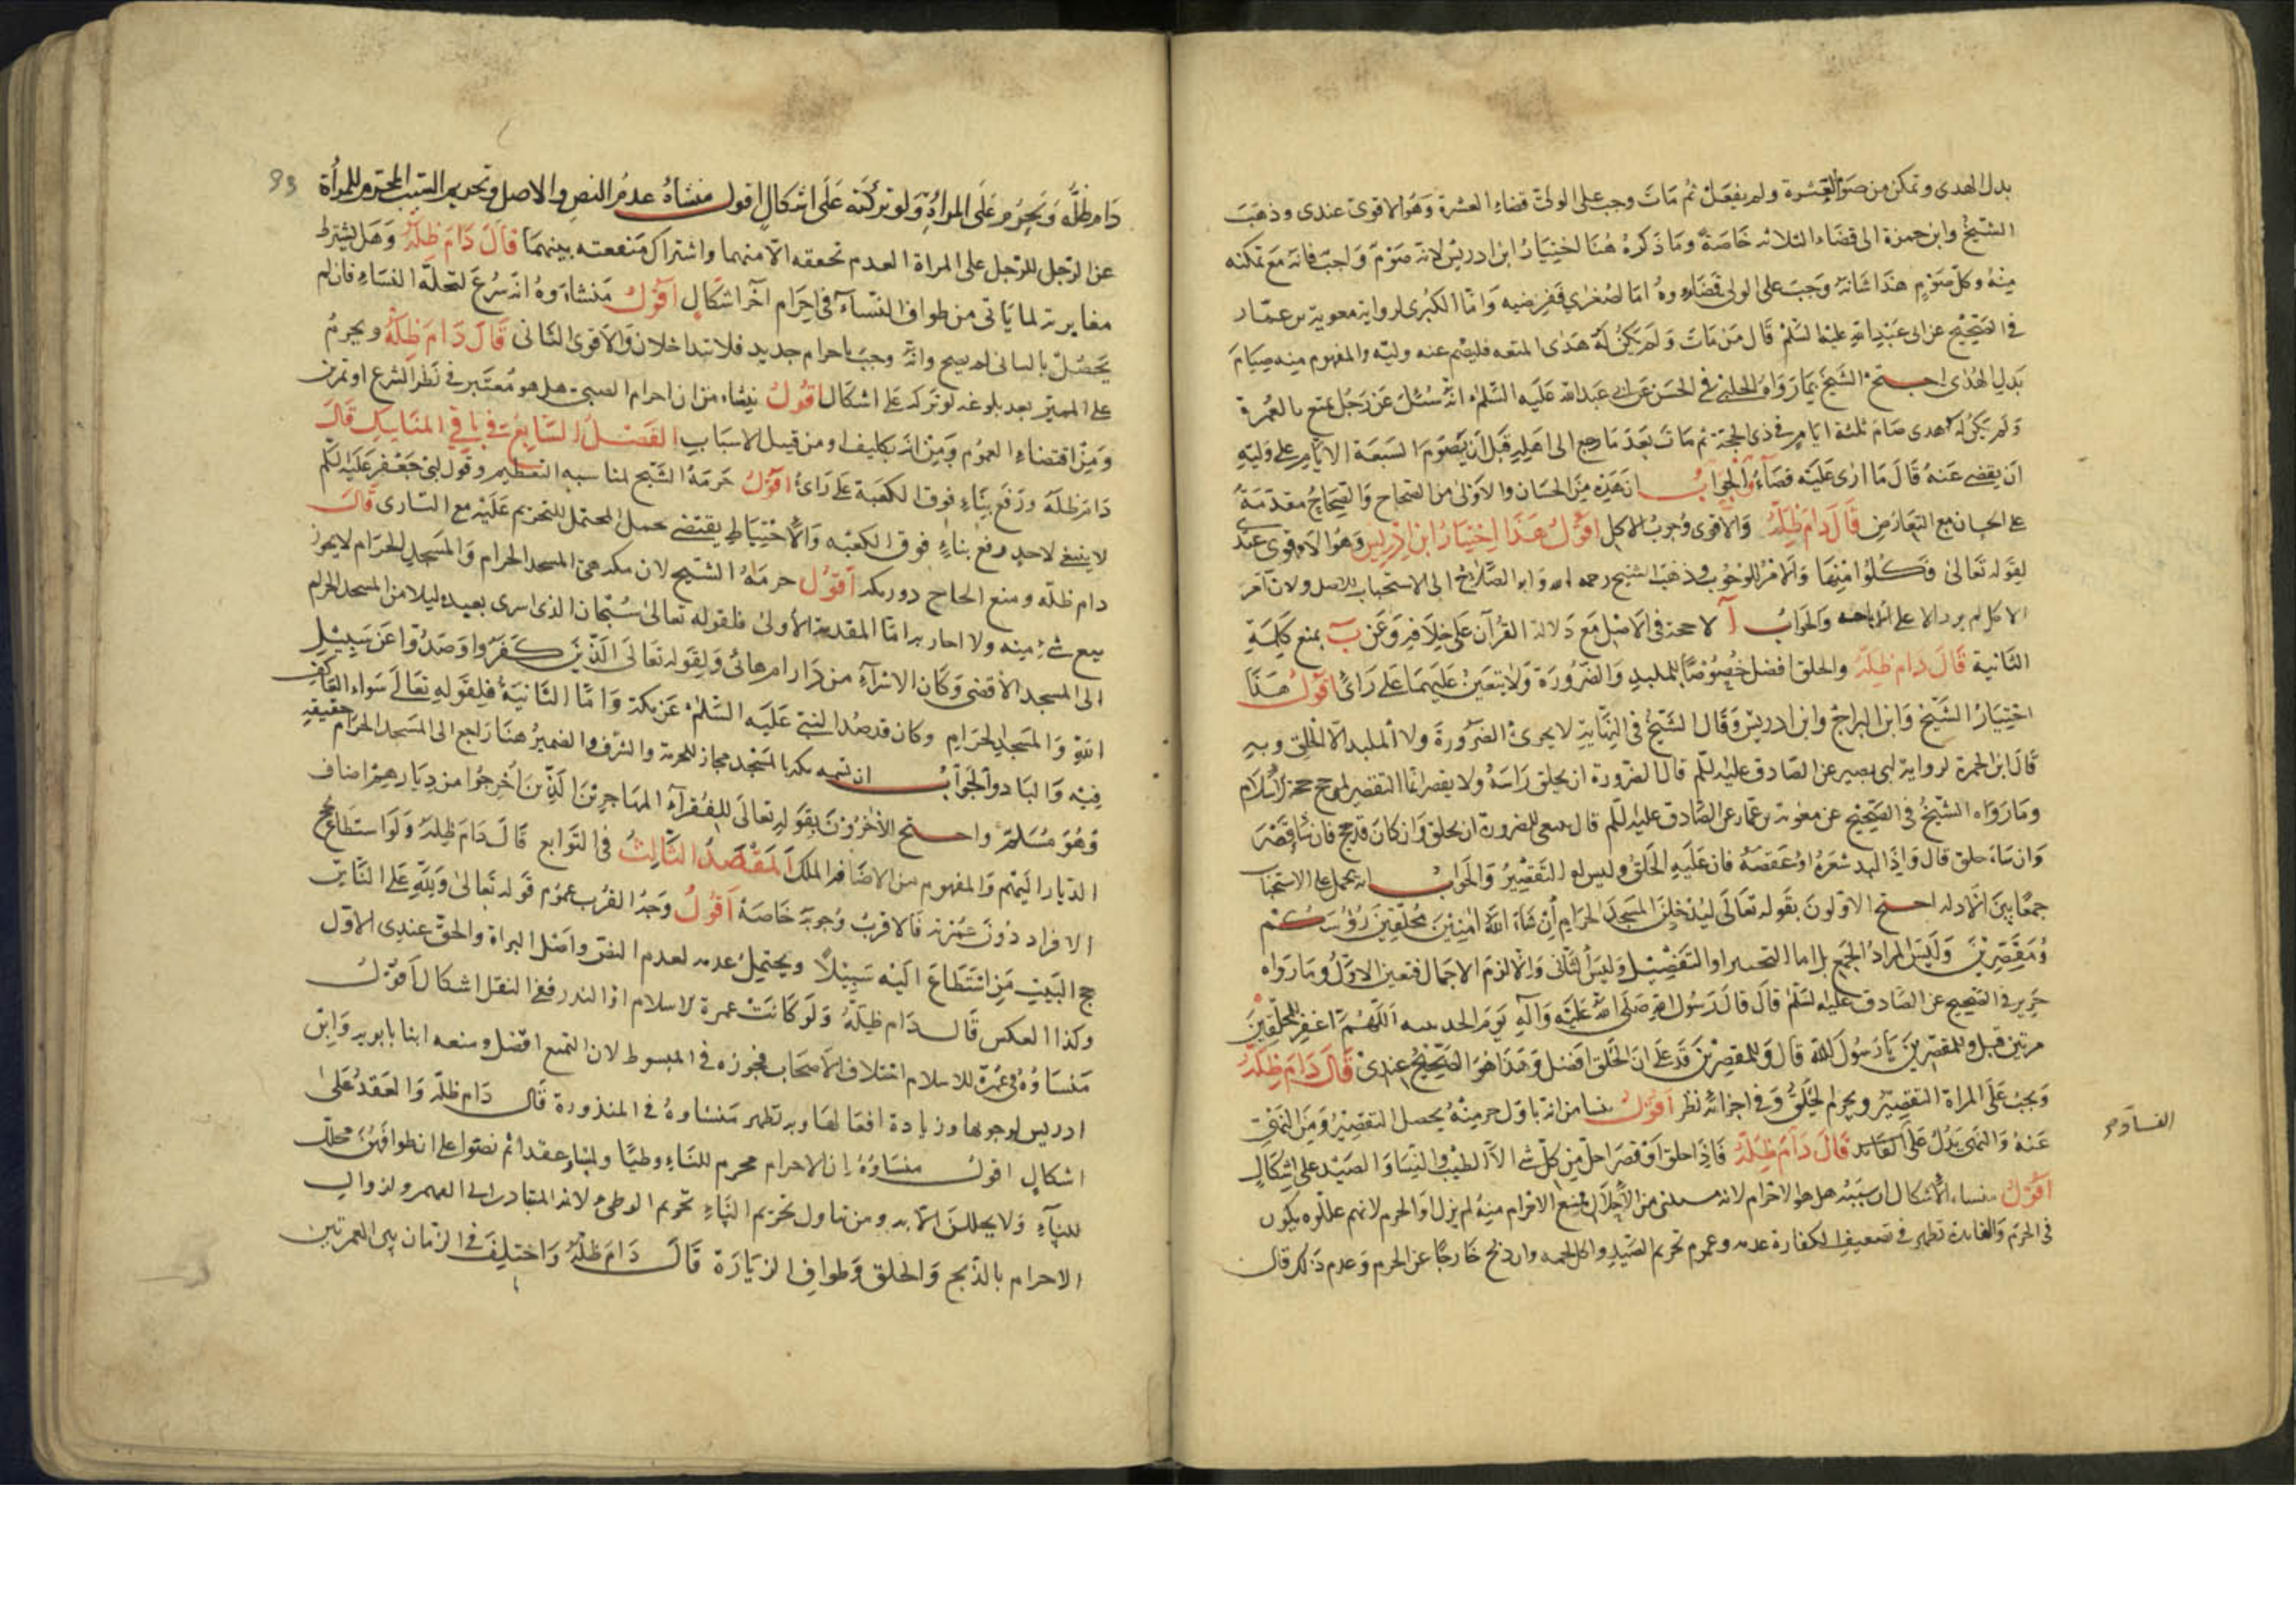 بدل الهدى وتمكن من صوم العشرة ولم يفعل ثم مات وجب على الولى قضاء العشرة وهو الاقوى عندى وذهب
الشيخ وابن حمزة الى قضاء الثلاثه خاصة وما ذكره هنا اختيار ابن ادريس لانه صوم واجب فاته مع تمكنه
منه وكل صوم هذا شانه وجب على الولى قضاوه اما الصغرى ففرضيه واما الكبرى لرواية معوية بن عمار
فى الصحيح عن ابى عبد الله عليه السلم قال من مات ولم يكن له هدى لمتعه فليصم عنه وليه والمفهوم منه صيام
بدل الهدى احتج الشيخ بما رواه الحلبى فى الحسن عن ابى عبد الله عليه السلم انه سئل عن رجل يتمتع بالعمرة
ولم يكن له هدى صام ثلثة ايام فى ذى الحجة ثم مات بعد ما رجع الى اهله قبل ان يصوم السبعة الايام على وليه
ان يقضى عنه قال ما ارى عليه قضاء والجواب ان هذه من الحسان والاولى من الصحاح والصحاح مقدمة
على الحسان مع التعارض قال دام ظله والاقوى وجوب الاكل اقول هذا اختيار ابن ادريس وهو الاقوى عندى
لقوله تعالى فكلوا منها والامر للوجوب وذهب الشيخ رحمه الله وابو الصلاح الى الاستحباب للاصل ولان آمر
الاكل لم يرد الا على الاباحه والجواب آ لا حجة فى الاصل مع دلالة القرآن على خلافه وعن ب بمنع كلية
الثانية قال دام ظله والحلق افضل خصوصا للملبد والصرورة ولا يتعين عليهما على رأى اقول هذا
اختيار الشيخ وابن البراج وابن ادريس وقال الشيخ فى النهاية لا يجزئ الصرورة ولا الملبد الا الحلق وبه
قال ابن حمزة لرواية ابى بصير عن الصادق عليه السلم قال الصرورة ان يحلق راسه ولا يقصر انما التقصير لمن حج حجة الاسلام
وما رواه الشيخ فى الصحيح عن معوية بن عمار عن الصادق عليه السلم قال ينبغى للصرورة ان يحلق وان كان قد حج فان شا قصر
وان شاء حلق قال واذا لبد شعره او عقصه فان عليه الحلق وليس له التقصير والجواب انه يحمل على الاستحباب
جمعا بين الادلة احتج الاولون بقوله تعالى لتدخلن المسجد الحرام ان شاء الله آمنين محلقين رؤسكم
ومقصرين وليس المراد الجمع بل اما التخيير او التفصيل وليس الثانى والا لزم الاجمال فتعين الاول وما رواه
حريز فى الصحيح عن الصادق عليه السلم قال قال رسول الله صلى الله عليه وآله يوم الحديبيه اللهم اغفر للمحلقين
مرتين قيل وللمقصرين يا رسول الله قال وللمقصرين فدل على ان الحلق افضل وهذا هو الصحيح عندى قال دام ظله
ويجب على المراة التقصير ويحرم الحلق وفى اجزائه نظر اقول ينشا من انه باول جزء منه يحصل التقصير ومن النهى
عنه والنهى يدل على الفساد قال دام ظله فاذا حلق او قصر احل من كل شى الا الطيب والنسا والصيد على اشكال
اقول منشاء الاشكال ان سببه هل هو الاحرام لانه استثنى من الاحلال الممنع الاحرام منه لم يزل او الحرم لانهم عللوه بكون
فى الحرم والفايدة تظهر فى تضعيف الكفارة عدمه وعموم تحريم الصيد واكل لحمه وان ذبح خارجا عن الحرم وعدم ذلك قال
الفساد صح
93
دام ظله ويحرم على المراة ولو تركته على اشكال اقول منشاه عدم النص والاصل وتحريم السبب المحرم للمرأة
عن الرجل للرجل على المراة لعدم تحققه الا منهما واشتراك منفعته بينهما قال دام ظله وهل يشترط
مغايرته لما ياتى من طواف النساء فى احرام آخر اشكال اقول منشاوه انه شرع لتحلة النساء فان لم
يحصل بالثانى لم يصح وانه وجب باحرام جديد فلا تتداخلان والاقوى الثانى قال دام ظله ويحرم
على المميز بعد بلوغه لو تركه على اشكال اقول ينشاء من ان احرام الصبى هل هو معتبر فى نظر الشرع او تمرين
ومن اقتضاء العموم ومن انه تكليف او من قبيل الاسباب الفصل السابع فى باقى المناسك قال
دام ظله ورفع بناء فوق الكعبة على رأى اقول حرمه الشيخ لمناسبه التعظيم وقول ابى جعفر عليه السلم
لا ينبغى لاحد يرفع بناء فوق الكعبه والاحتياط يقتضى حمل المحتمل للتحريم عليه مع التساوى قال
دام ظله ومنع الحاج دور مكه اقول حرمه الشيخ لان مكه هى المسجد الحرام والمسجد الحرام لا يجوز
بيع شئ منه ولا اجارته اما المقدمة الاولى فلقوله تعالى سبحان الذى اسرى بعبده ليلا من المسجد الحرام
الى المسجد الاقصى وكان الاسراء من دار ام هانى ولقوله تعالى الذين كفروا وصدوا عن سبيل
الله والمسجد الحرام وكان قد صد النبى عليه السلم عن مكة واما الثانية فلقوله تعالى سواء العاكف
فيه والباد والجواب ان تسميه مكه بالمسجد مجاز للحرمة والشرف والضمير هنا راجع الى المسجد الحرام حقيقة
وهو مسلم واحتج الآخرون بقوله تعالى للفقراء المهاجرين الذين اخرجوا من ديارهم اضاف
الديار اليهم والمفهوم من الاضافة الملك المقصد الثالث فى التوابع قال دام ظله ولو استطاع لحج
الافراد دون عمرته فالاقرب وجوبه خاصة اقول وجه القرب عموم قوله تعالى ولله على الناس
حج البيت من استطاع اليه سبيلا ويحتمل عدمه لعدم النص واصل البراة والحق عندى الاول
وكذا العكس قال دام ظله ولو كانت عمرة الاسلام او النذر ففى النقل اشكال اقول
منشاوه فى عمرة الاسلام اختلاف الاصحاب فجوزه فى المبسوط لان التمتع افضل ومنعه ابنا بابويه وابن
ادريس لوجوبها وزيادة افعالها وبه تظهر منشاوه فى المنذورة قال دام ظله والعقد على
اشكال اقول منشاوه ان الاحرام محرم للنساء وطيا ولمسا وعقدا ثم نصوا على ان طوافهن محلل
للنساء ولا يحللن الا به ومن تناول تحريم النساء تحريم الوطى لانه المتبادر الى الفهم ولزوال
الاحرام بالذبح والحلق وطواف الزيارة قال دام ظله واختلف فى الزمان بين العمرتين